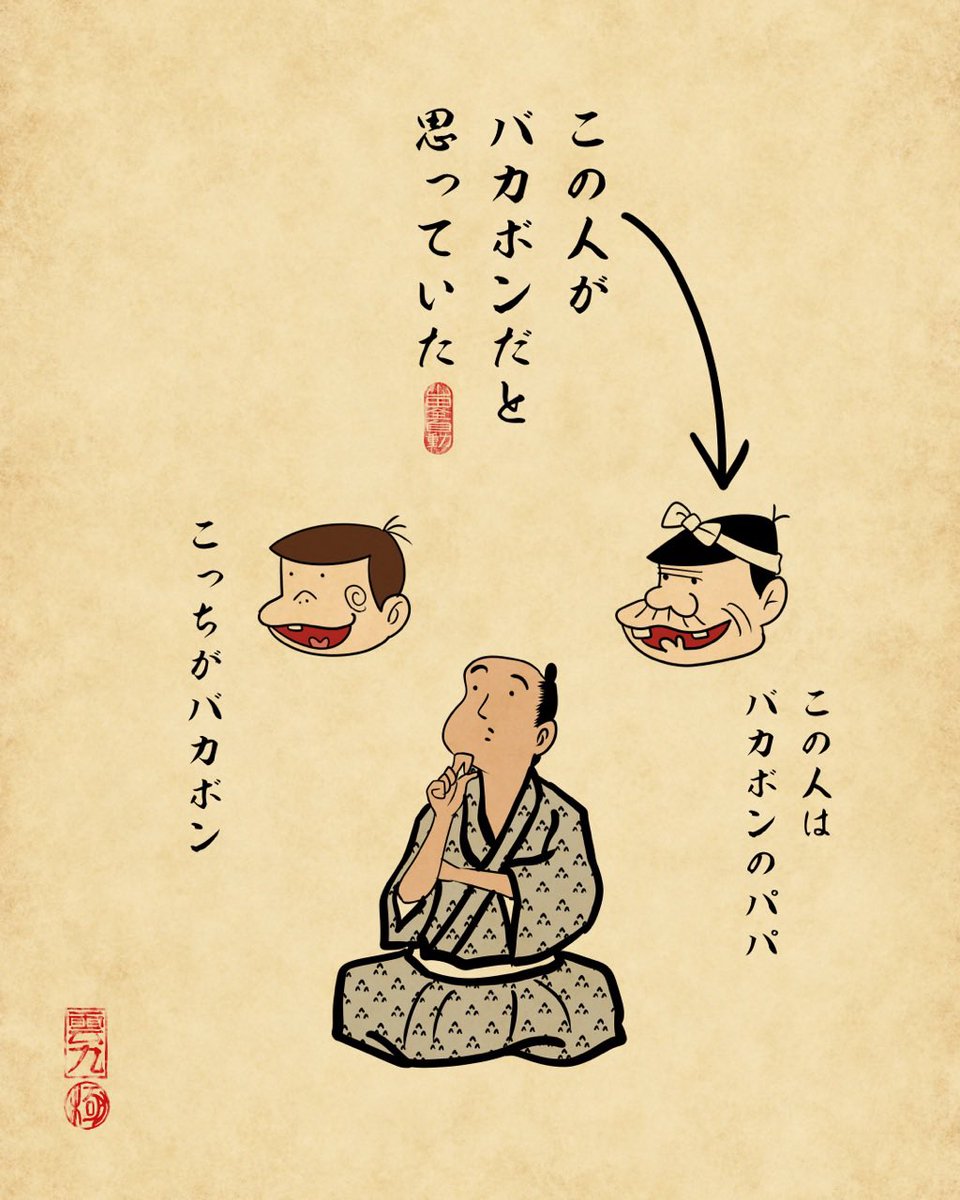 この人が
バカボンだと
思っていた
この人は
バカボンのパパ
こっちがバカボン